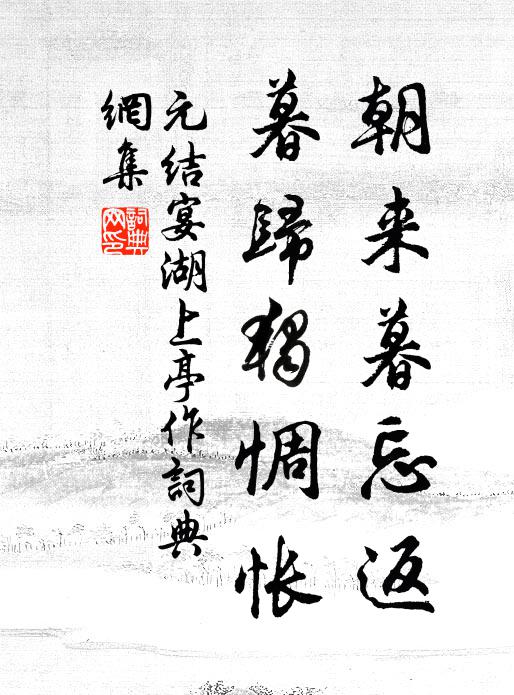 朝来暮忘返
暮歸獨惆悵
元结宴湖上亭作詞典
網集
詞典
网印